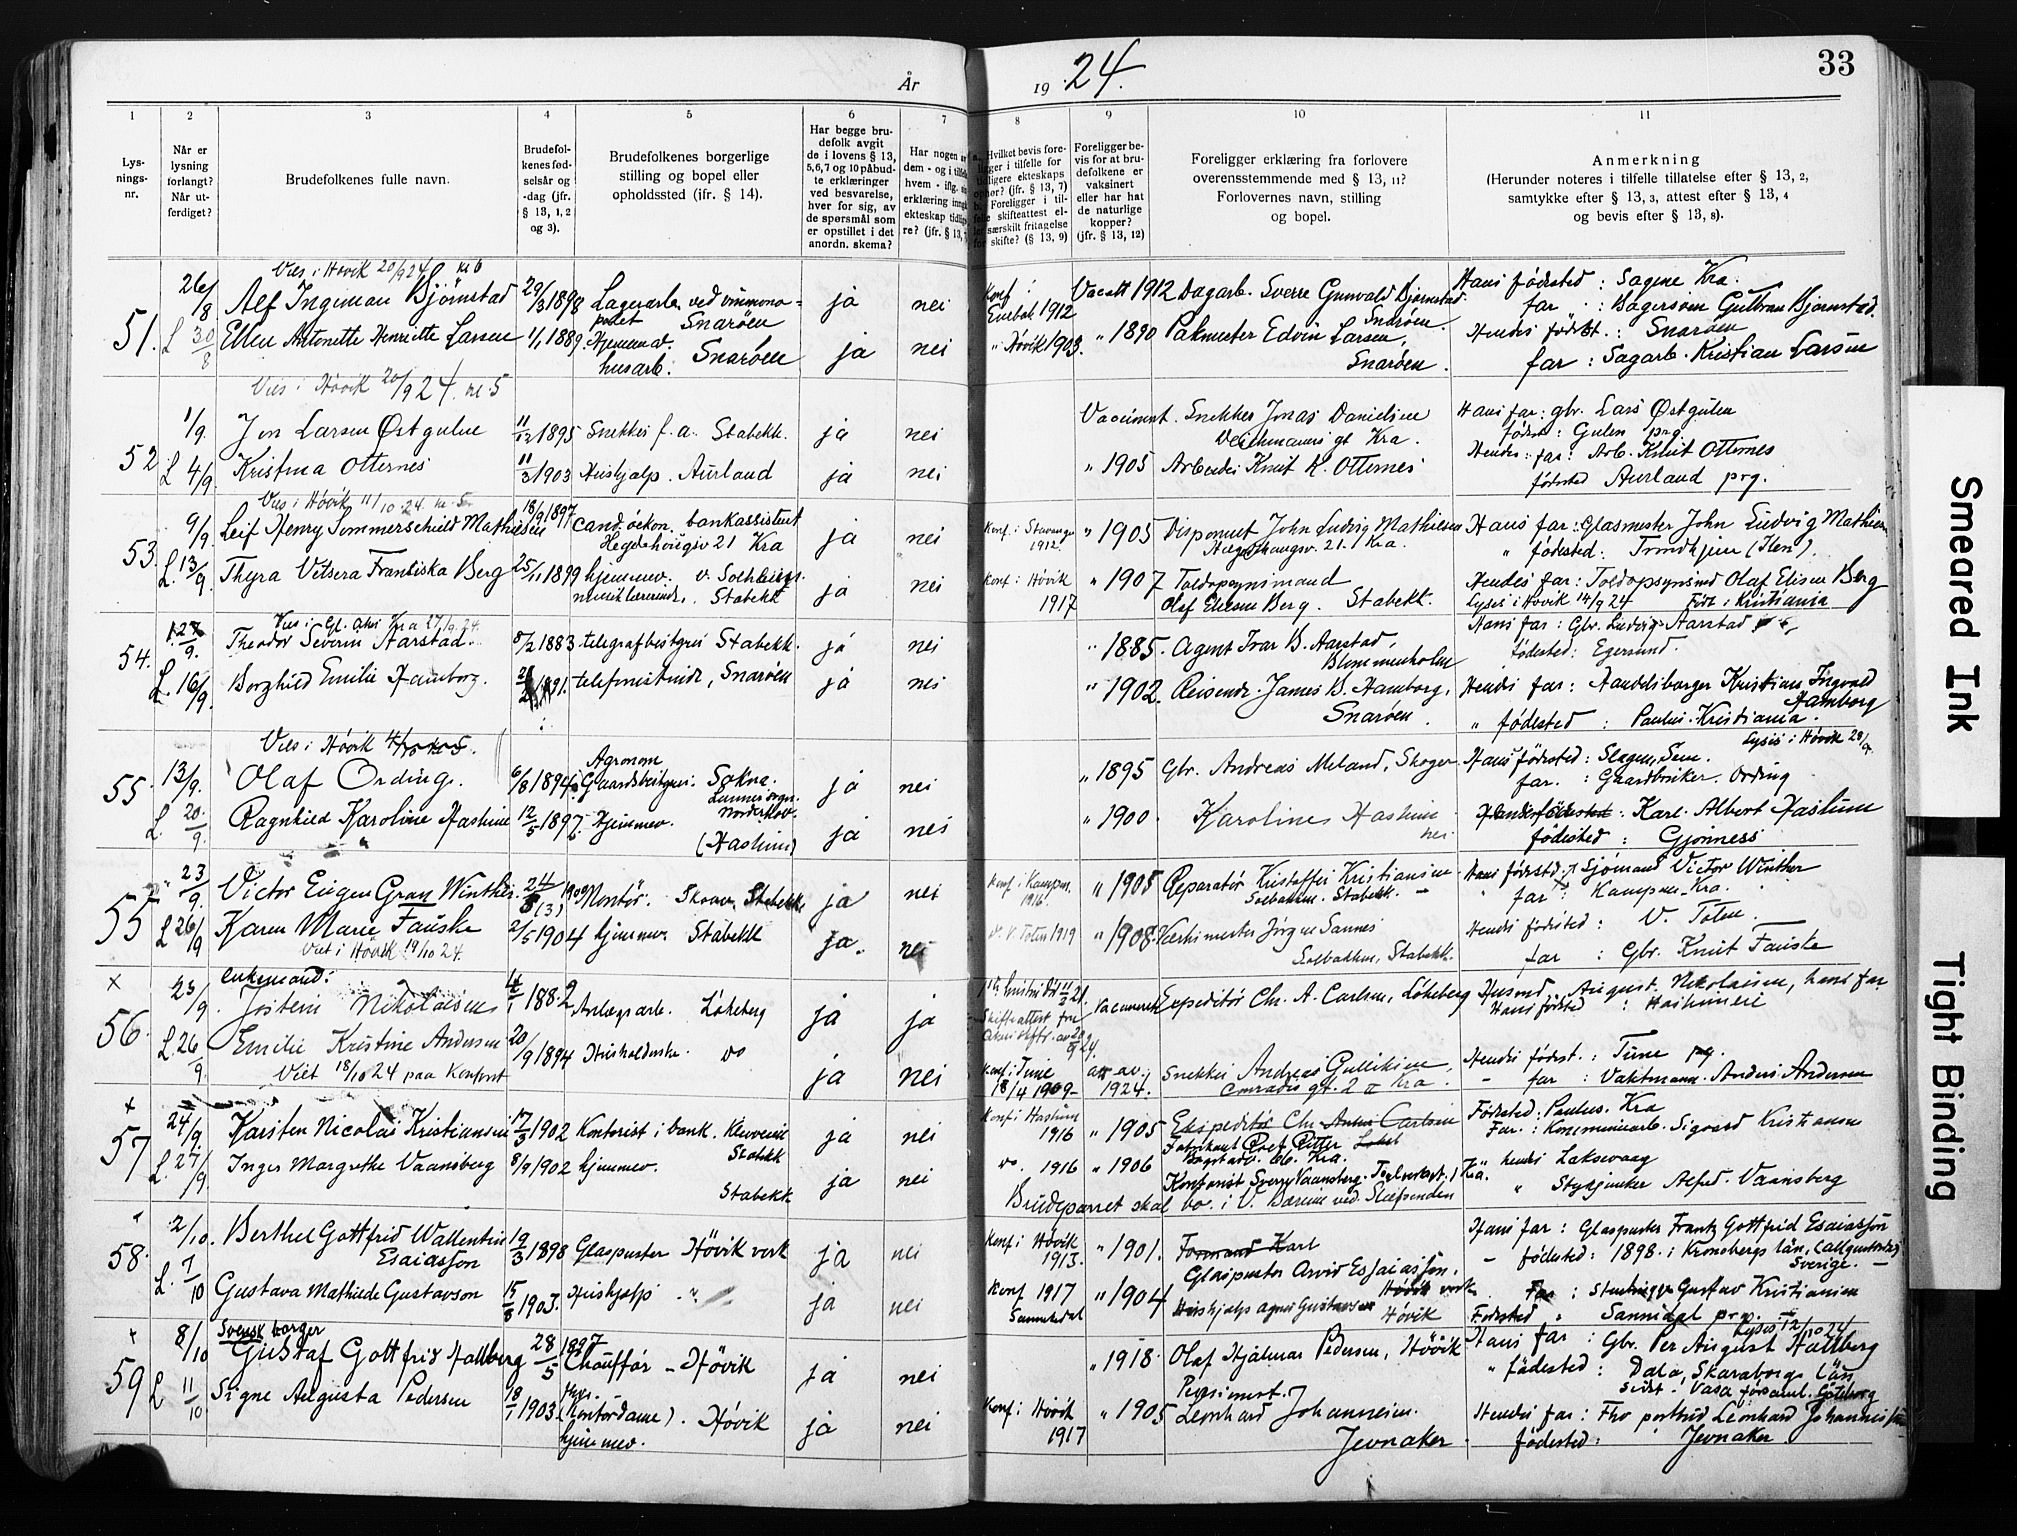 År 1924.
33
1 2 3 4 5 6 7 8 9 10 11
Lys-
nings-
nr.
Når er
lysning
forlangt?
Når ut-
ferdiget?
Brudefolkenes fulle navn.
Brudefol-
kenes fød-
selsår og
-dag (jfr.
§ 13, 1, 2
og 3).
Brudefolkenes borgerlige
stilling og bopel eller
opholdssted (jfr. § 14).
Har begge bru-
defolk avgit
de i lovens § 13,
5,6,7 og 10 påbud-
te erklæringer
ved besvarelse,
hver for sig, av
de spørsmål som
er opstillet i det
anordn. skema?
Har nogen
dem - og i
hvem - ifg.
erklæring
ekteskap
re? (jfr. § 13,
Hvilket bevis fore-
ligger i tilfelle for
tidligere ekteskaps
ophør? (jfr. § 13, 7)
Foreligger i til-
felle skifteattest el-
ler særskilt fritagelse
for skifte? (§ 13, 9)
Foreligger be-
vis for at bru-
defolkene er
vaksinert
eller har hat
de naturlige
kopper?
(jfr. § 13, 12)
Foreligger erklæring fra forlovere
overensstemmende med § 13, 11?
Forlovernes navn, stilling
og bopel.
Anmerkning
(Herunder noteres i tilfelle tillatelse efter § 13, 2,
samtykke efter § 13, 3, attest efter § 13, 4
og bevis efter § 13, 8).
Vies i Høvik 20/9 24 nr 6
51. 26/8 Alf Ingiman Bjørnstad 29/3 1898 Lagerarb. ved Snarøen ja nei Konf i Enebak 1912 Vacatt 1912 Dagarb. Sverre Gunvald Bjørnstad Snarøen. Hans fødested : Sagene Kra.
far : Bagersven Gulbran Bjørnstad.
L 30/8 Ellen Antonette Henriette Larsen 1/1 1889 Hjemmev. husarb. Snarøen ja nei " Høvik 1903. " 1890 Pakmester Edvin Larsen, Snarøen. Hendes fødest. : Snarøen
far : Sagarb. Kristian Larsen
Vies i Høvik 20/9 24. nr 5
52 1/9. Jon Larsen Østgulen 11/12 1895 Snekker f. a. Stabekk. ja nei Snekker Jonas Danielsen Deichmans gt Kra. Hans far: gbr. Lars Østgulen
fødest : Gulen prg
L 4/9. Kristina Otternes 11/3 1903 Hushjælp. Aurland ja nei " 1905 Arbeider Knut K. Otternes Hendes far: Arb. Knut Otternes
fødested Aurland prg.
Vies i Høvik 11/10 24. nr 5
53. 9/9. Leif Henry Sommerschield Mathiesen 18/9 1897 cand. oekon. bankassistent Hegdehougsv 21 Kra ja nei Konf. i Stavanger 1912. " 1905 Disponent John Ludvig Mathiesen Hegdehaugsv. 21. Kra. Hans far: Glasmester John Ludvig Mathiesen
" fødested: Trondhjem (Ilen).
L. 13/9. Thyra Vetsera Franciska Berg 25/11 1899 hjemmev. Stabekk ja nei Konf. i Høvik 1917 " 1907 Toldopsynsmand Olaf Elisen Berg. Stabekk. Hendes far: Toldopsynsmd Olaf Elisen Berg
Lyses i Høvik 14/9 24 Født i Kristiania
Vies i Gl. Akers Kra 27/9 24.
54. 9. Theodor Severin Aarstad. 8/2 1883 telegrafbestyrer Stabekk. ja nei " 1885. Agent Ivar B. Aarstad, Blommenholm Hans far : Gbr. Ludvig Aarstad
fødested: Egersund.
L. 16/9. Borghild Emilie Hamborg. 1891. telefonistinde, Snarøen ja nei " 1902. Reisende James B. Hamborg, Snarøen. Hendes far : Handelsborger Kristian Ingvald Hamborg
" fødested : Paulus. Kristiania.
Lyses i Høvik 28/9.
Vies i Høvik 4/10 nr 5.
55. 13/9. Olaf Ording. 6/8 1894 Agronom Gaardsbestyrer. Sokna. Lunner sogn. Norderhov. ja nei " 1895 Gbr. Andreas Meland, Skoger Hans fødested: Slagen, Sem.
far. : Gaardbruker. Ording
L. 20/9. Ragnhild Karoline Haslum 12/5 1897. Hjemmev. (Haslum) ja nei " 1900. Karoline Haslum Karl Albert Haslum
fødested : Gjønnes
55 23/9. Victor Eugen Gran Winther 24/8 Montør. Stabekk ja nei Konf. i Kampen. 1916. " 1905 Reparatør Kristoffer Kristiansen Solbakken. Stabekk. Hans fødestd. Sjømand Victor Winther
far Kampen Kra.
L 26/9 Karen Marie Fauske 2/5 1904 hjemmev. Stabekk ja. nei V. Toten 1919 " 1908. Værksmester Jørgen Sannes Solbakken, Stabekk. Hendes fødested : V. Toten.
far : Gbr. Knut Fauske
Viet i Høvik 19/10 24.
56. × 23/9. enkemand: Jostein Nikolaisen 1882 Anlægsarb. Løkeberg ja ja Skifteattest fra Vaccineret Expeditør Chr. A. Carlsen, Løkeberg Husmd. August Nikolaisen, hans far
Hans fødested :
L. 26/9. Emilie Kristine Andersen 20/9 1894 Husholderske. do ja nei Konf. i Tune 18/4 1909 att. av. 1924. Snekker Andreas Gulliksen, Conradis gt. 2 Kra. Hendes fødest. : Tune prg.
far : Vaktmand Anders Andersen
Viet 18/10 24 paa Kontoret
57 × 24/9. Karsten Nicolai Kristiansen 17/3 1902 Kontorist i bank. Stabekk ja nei Konf. i Haslum 1916 " 1905 Ekspeditør Chr Anton Carlsen Fødested : Paulus. Kra
Far. : Kommunearb. Sigvard Kristiansen
L. 27/9. Inger Margrethe Vaansberg 8/9 1902 hjemmev. Stabekk ja nei do. 1916 " 1906 Kontorist Sverre Vaansberg. Kra. hendes Laksevaag
" Stykjunker Alfred Vaansberg
Brudeparret skal bo i V. Bærum ved Slæpenden
58. 2/10. Berthel Gottfrid Wallentin Esaiasson 19/3 1898 Glaspuster Høvik verk ja nei Konf. i Høvik 1913. " 1901. Formand Karl Glaspuster Arvid Esaiasson, Høvik verk Hans far : Glaspuster Frantz Gottfrid Esaiasson
fødested : 1898. i Kronobergs län, Sverige.
L. 7/10 Gustava Mathilde Gustavson 15/8 1903. Hushjælp " ja nei Konf 1917 Sannidal " 1904 Hushjælp Agnes Gustavsen Høvik Far : Gustav Kristiansen
Fødested " Sannidal prg.
Lyses 12/10 24
59 × 8/10 Svensk borger Gustaf Gottfrid Hallberg 28/5 1897 Chauffør - Høvik ja nei " 1918. Olaf Hjalmar Pedersen, Høvik Hans far : Gbr. Per August Hallberg
" fødested : Dala, Skaraborgs Län,
sidst. Vasa församl. Göteborg
L 11/10 Signe Augusta Pedersen 18/1 1903. (Kontordame). hjemmev. Høvik ja nei Konf. i Høvik 1917 " 1905 Leonhard Johannesen. Jevnaker. Hendes far : Leonhard Johannessen
fødested : Jevnaker
Smeared Ink
Tight Binding